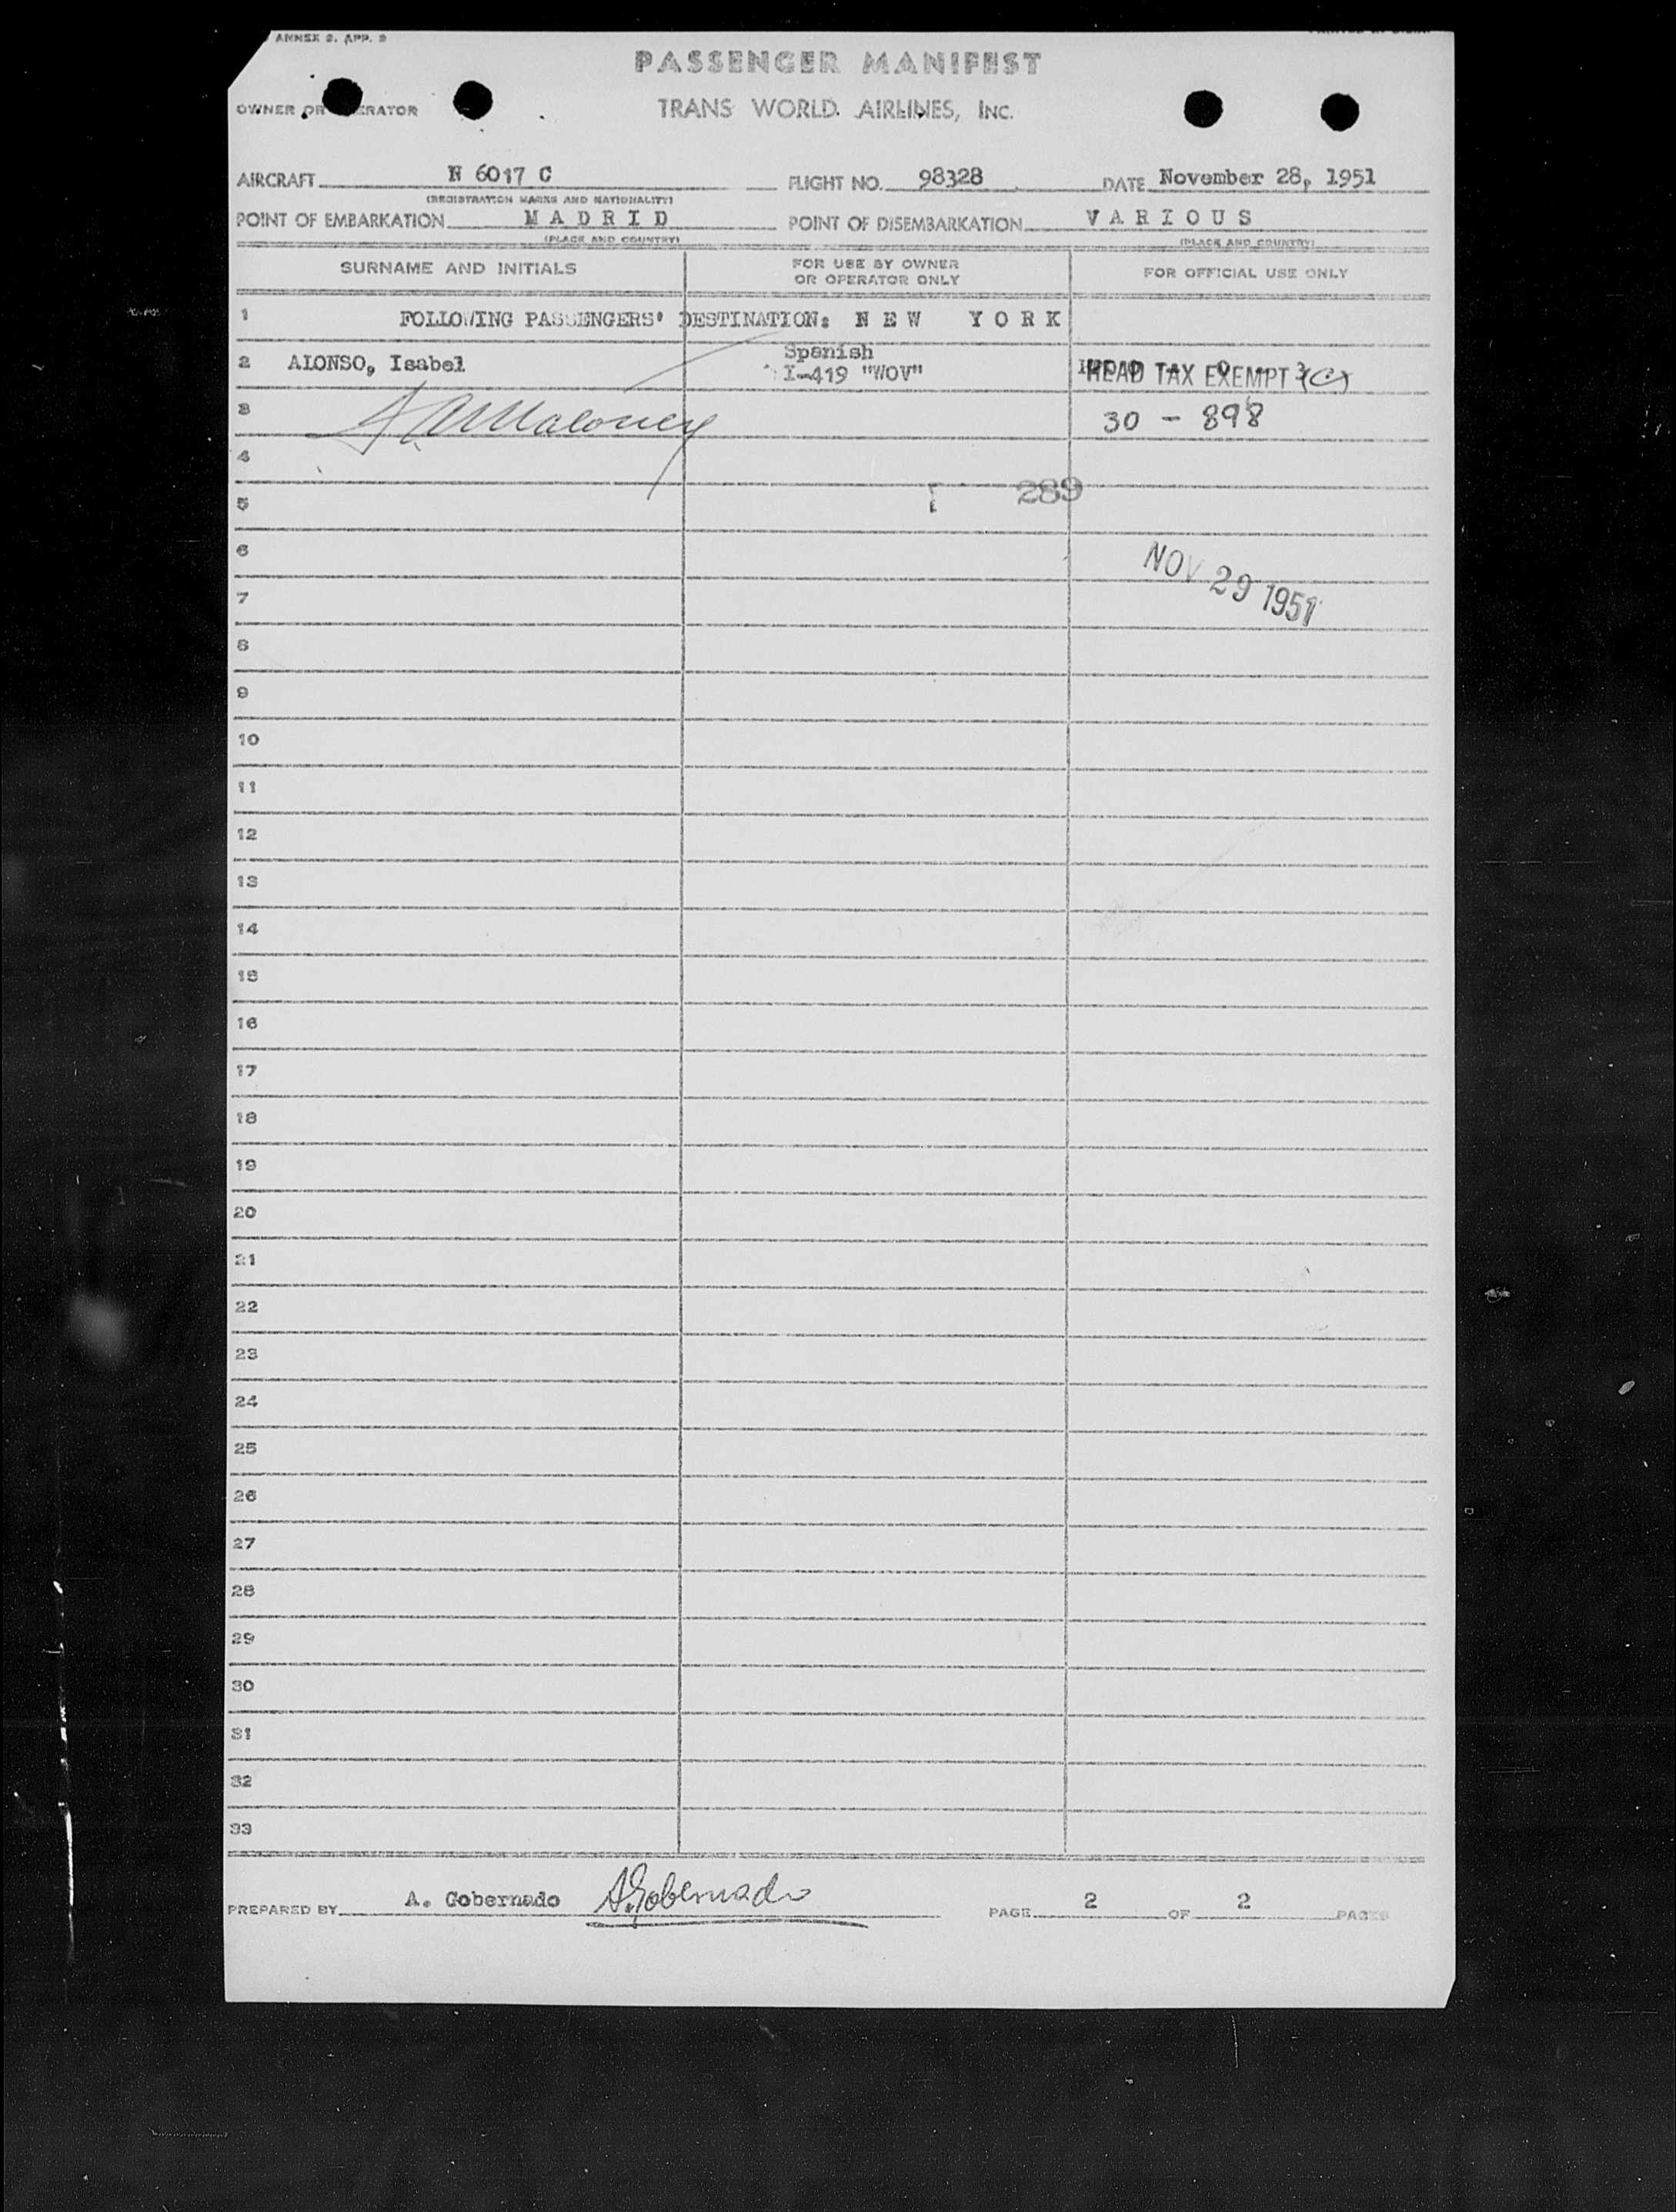 ANNEX 2. APP. 2
PASSENGER MANIFEST
OWNER OR OPERATOR TRANS WORLD AIRLINES, INC.
AIRCRAFT N 6017 C FLIGHT NO. 98328 DATE November 28, 1951
(REGISTRATION MARKS AND NATIONALITY)
POINT OF EMBARKATION M A D R I D POINT OF DISEMBARKATION V A R I O U S
(PLACE AND COUNTRY) (PLACE AND COUNTRY)
SURNAME AND INITIALS FOR USE BY OWNER OR OPERATOR ONLY FOR OFFICIAL USE ONLY
1 FOLLOWING PASSENGERS' DESTINATION: N E W Y O R K
2 ALONSO, Isabel Spanish I-419 "WOV" HEAD TAX EXEMPT 3(C)
3 Maloney 30 - 898
4
289
5
6
NOV 29 1951
7
8
9
10
11
12
13
14
15
16
17
18
19
20
21
22
23
24
25
26
27
28
29
30
31
32
33
PREPARED BY A. Gobernado A. Gobernado PAGE 2 OF 2 PAGES